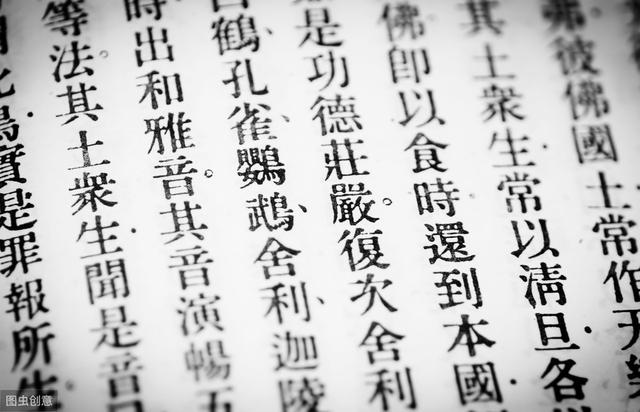 弗。彼佛國土常作天
其土衆生.常以清旦.各
佛即以食時.還到本國.
是功德莊嚴。復次舍利
白鶴、孔雀、鸚鵡、舍利、迦陵
時出和雅音。其音演暢五
等法。其土衆生.聞是音
此鳥.實是罪報所生
图虫创意